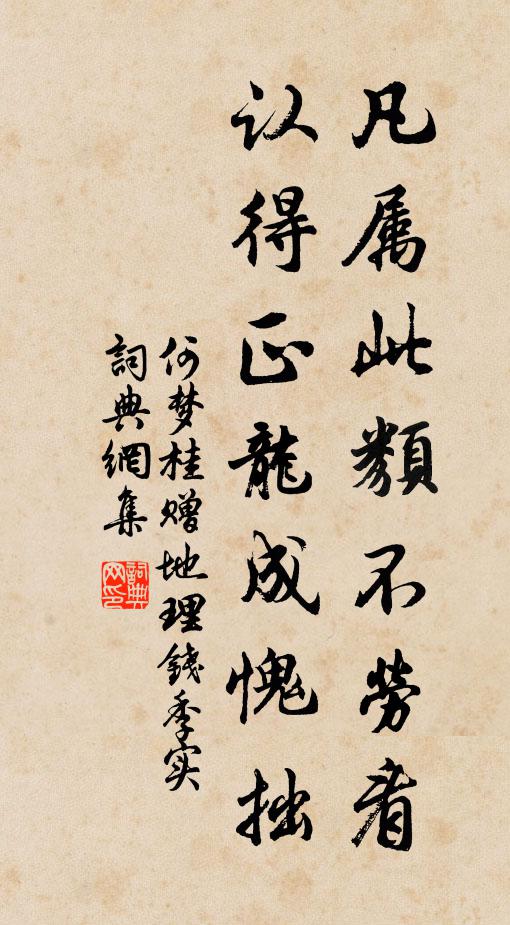 凡属此類不勞看
认得正龍成愧拙
何梦桂赠地理錢季实
詞典網集
詞典网印